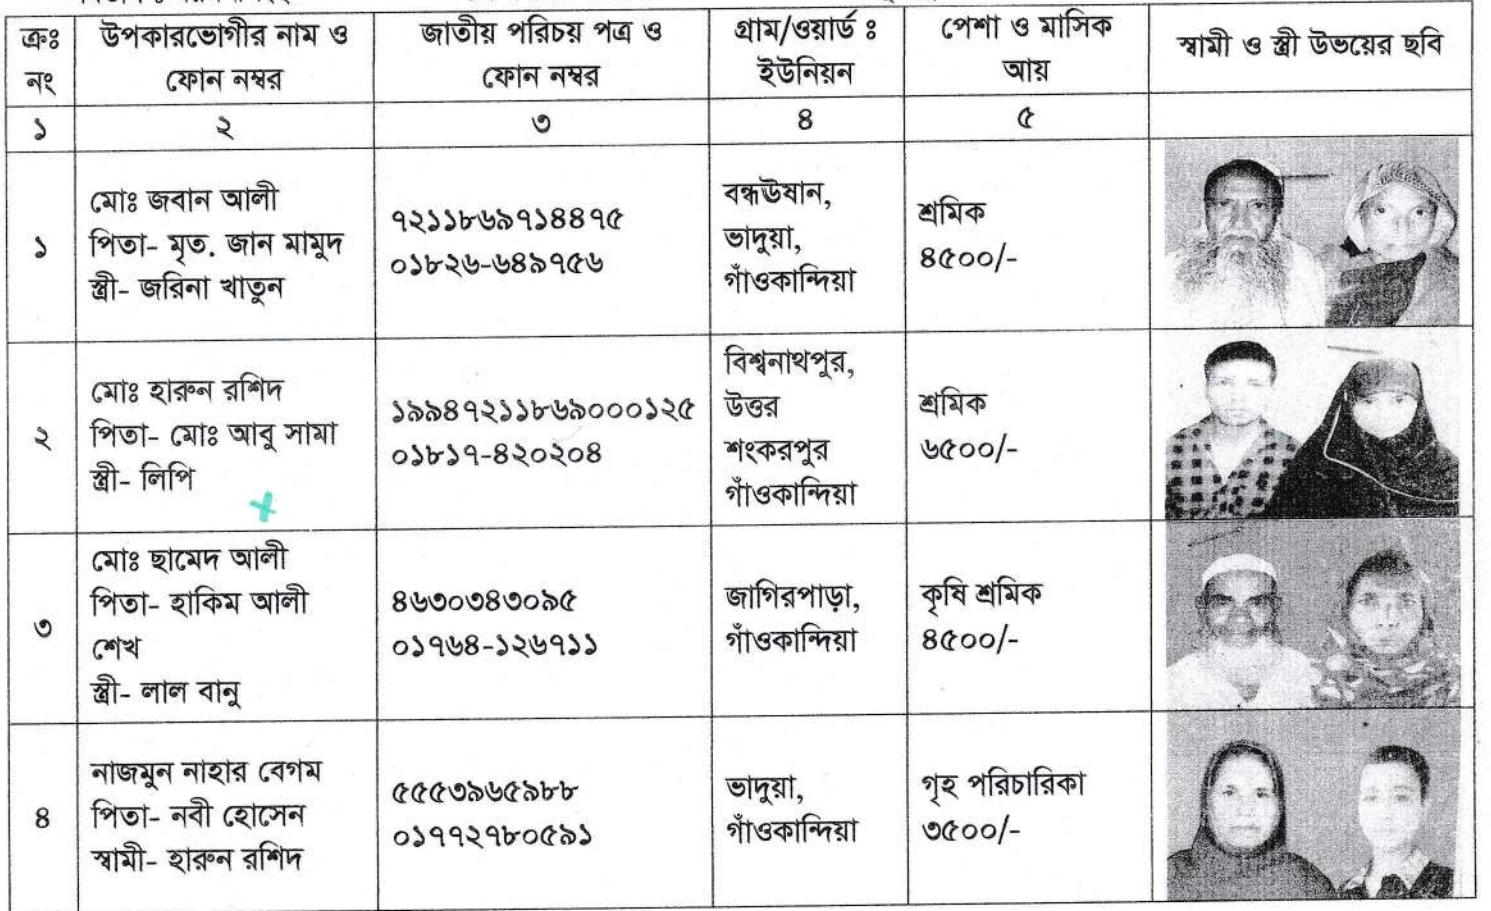 ক্রঃ নং
উপকারভোগীর নাম ও ফোন নম্বর
জাতীয় পরিচয় পত্র ও ফোন নম্বর
গ্রাম/ওয়ার্ড ঃ ইউনিয়ন
পেশা ও মাসিক আয়
স্বামী ও স্ত্রী উভয়ের ছবি
১
২
৩
৪
৫
১
মোঃ জবান আলী
পিতা- মৃত. জান মামুদ
স্ত্রী- জরিনা খাতুন
৭২১১৮৬৯৭১৪৪৭৫
০১৮২৬-৬৪৯৭৫৬
বন্ধঊষান,
ভাদুয়া,
গাঁওকান্দিয়া
শ্রমিক
৪৫০০/-
২
মোঃ হারুন রশিদ
পিতা- মোঃ আবু সামা
স্ত্রী- লিপি
১৯৯৪৭২১১৮৬৯০০০১২৫
০১৮১৭-৪২০২০৪
বিশ্বনাথপুর,
উত্তর
শংকরপুর
গাঁওকান্দিয়া
শ্রমিক
৬৫০০/-
৩
মোঃ ছামেদ আলী
পিতা- হাকিম আলী
শেখ
স্ত্রী- লাল বানু
৪৬৩০৩৪৩০৯৫
০১৭৬৪-১২৬৭১১
জাগিরপাড়া,
গাঁওকান্দিয়া
কৃষি শ্রমিক
৪৫০০/-
৪
নাজমুন নাহার বেগম
পিতা- নবী হোসেন
স্বামী- হারুন রশিদ
৫৫৫৩৯৬৫৯৮৮
০১৭৭২৭৮০৫৯১
ভাদুয়া,
গাঁওকান্দিয়া
গৃহ পরিচারিকা
৩৫০০/-